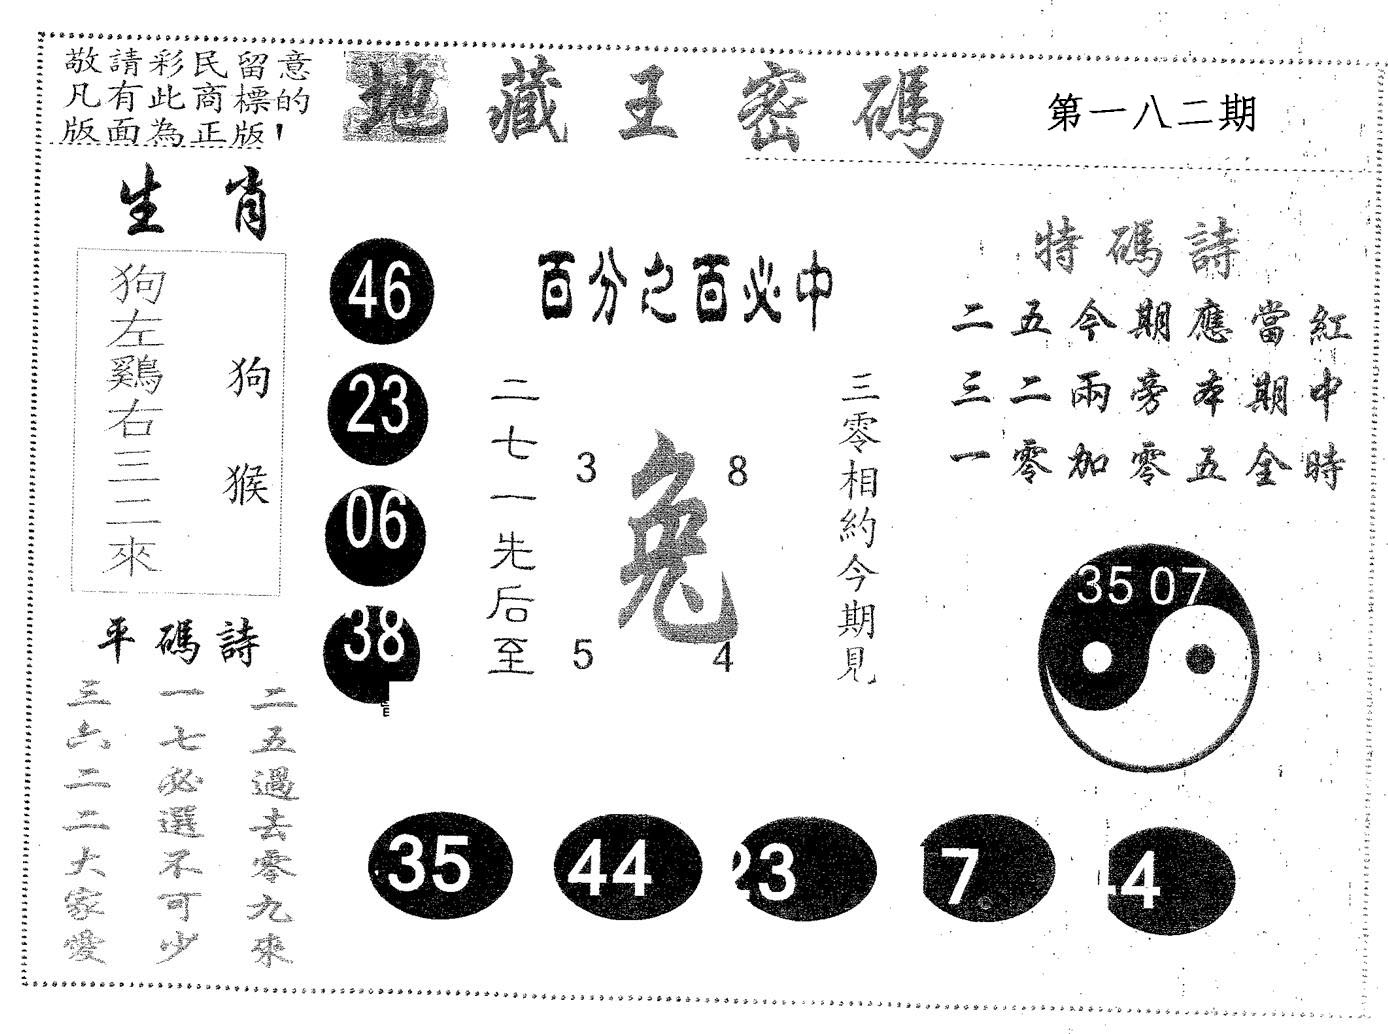 敬請彩民留意
凡有此商標的
版面為正版！
地藏王密碼
第一八二期
生肖
狗左鷄右三二來
狗猴
46
23
06
38
百分之百必中
二七一先后至
3
8
兔
5
4
三零相約今期見
特碼詩
二五今期應當紅
三二兩旁本期中
一零加零五全時
35 07
平碼詩
二五過去零九來
一七必選不可少
三六二二大家愛
35
44
23
7
4